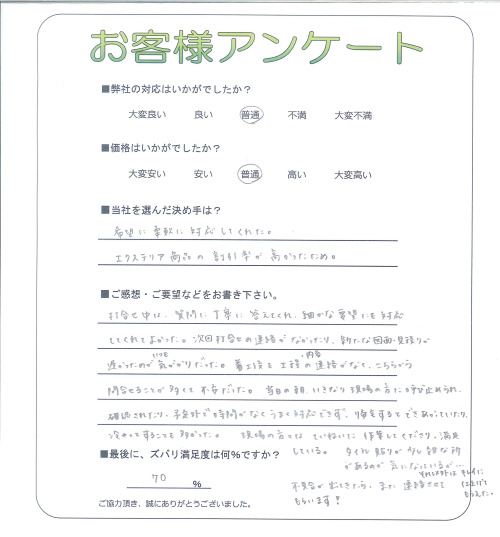 お客様アンケート
■弊社の対応はいかがでしたか？
大変良い 良い 普通 不満 大変不満
■価格はいかがでしたか？
大変安い 安い 普通 高い 大変高い
■当社を選んだ決め手は？
希望に柔軟に対応してくれた。
エクステリア商品の割引率が高かったため。
■ご感想・ご要望などをお書き下さい。
打合せ中は、質問に丁寧に答えてくれ、細かな要望にも対応
してくれてよかった。次回打合せの連絡がなかったり、新たな図面・見積りが
遅かったのが気がかりだった。着工後も工程の連絡がなく、こちらから
いつも
・内容
問合せることが多くて不安だった。当日の朝、いきなり現場の方に呼び止められ、
確認されたり、予定外で時間がなくうまく対応できず、帰宅するとできあがっていたり、
決めってすることも多かった。 現場の方々は ていねいに作業してくださり、満足
している。 タイル貼りが少し雑な所
があるのが気になっているが…
それ以外はキレイに
仕上げて
もらえた。
■最後に、ズバリ満足度は何%ですか？
70 %
不具合が出てきたら、また連絡させて
もらいます！
ご協力頂き、誠にありがとうございました。